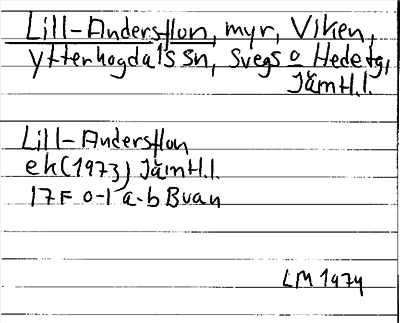 Lill-Andersflon, myr, Viken,
Ytterhogdals sn, Svegs o Hedetg,
Jämtl.l.
Lill-Andersflon
ek (1973) Jämtl.l.
17F 0-1 a-b Buan
LM 1974